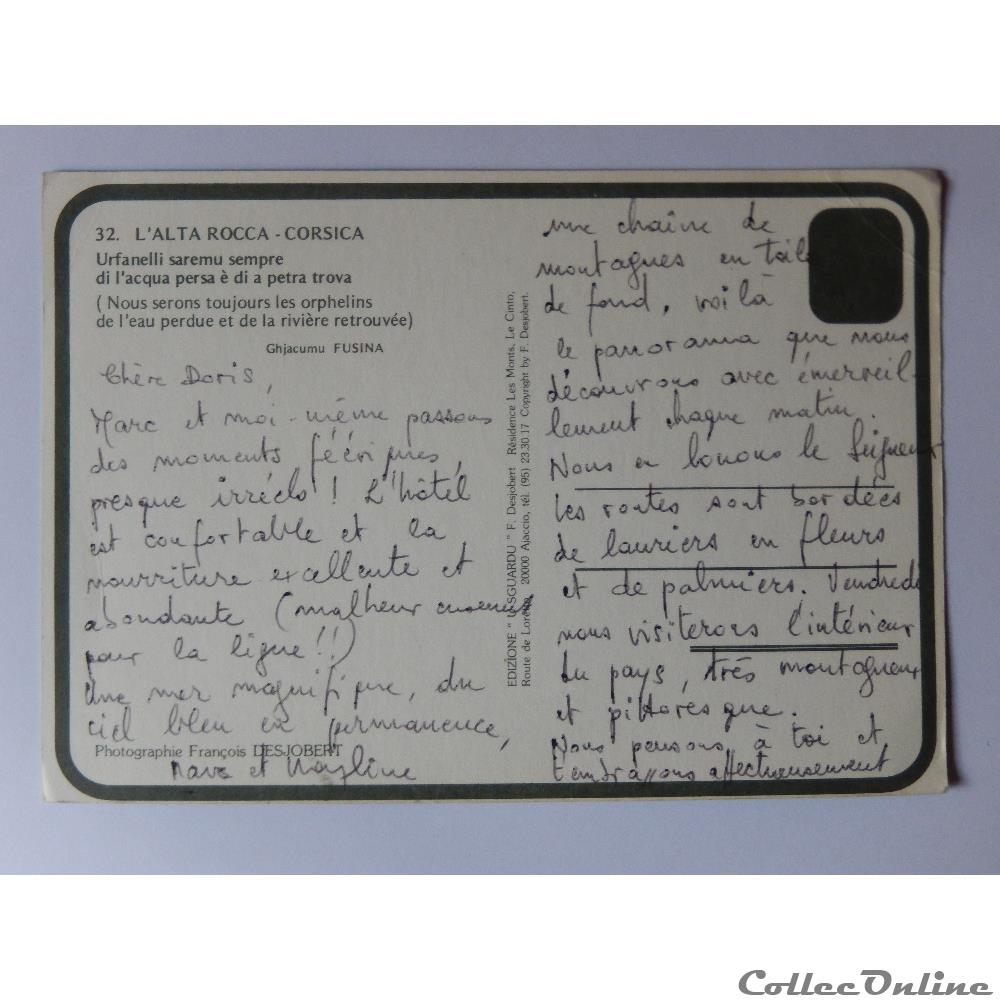 32. L'ALTA ROCCA - CORSICA
Urfanelli saremu sempre
di l'acqua persa è di a petra trova
( Nous serons toujours les orphelins
de l'eau perdue et de la rivière retrouvée)
Ghjacumu FUSINA
Chère Doris,
Marc et moi-même passons
des moments féériques,
presque irréels ! L'hôtel
est confortable et la
nourriture excellente et
abondante (malheureusement
pour la ligne !!)
Une mer magnifique, du
ciel bleu en permanence,
Photographie François DESJOBERT
Marc et
EDIZIONE " U SGUARDU " F. Desjobert Résidence Les Monts, Le Cinto,
Route de Loretto, 20000 Ajaccio, tél. (95) 23.30.17 Copyright by F. Desjobert.
une chaîne de
montagnes en toile
de fond, voilà
le panorama que nous
découvrons avec émerveil-
lement chaque matin.
Nous en louons le Seigneur
Les routes sont bordées
de lauriers en fleurs
et de palmiers. Vendredi
nous visiterons l'intérieur
du pays, très montagneux
et pittoresque.
Nous pensons à toi et
t'embrassons affectueusement
CollecOnline